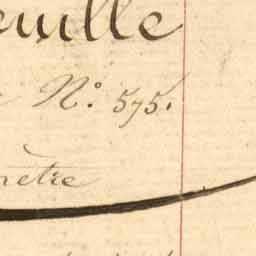 euille
N.º 575.
metre